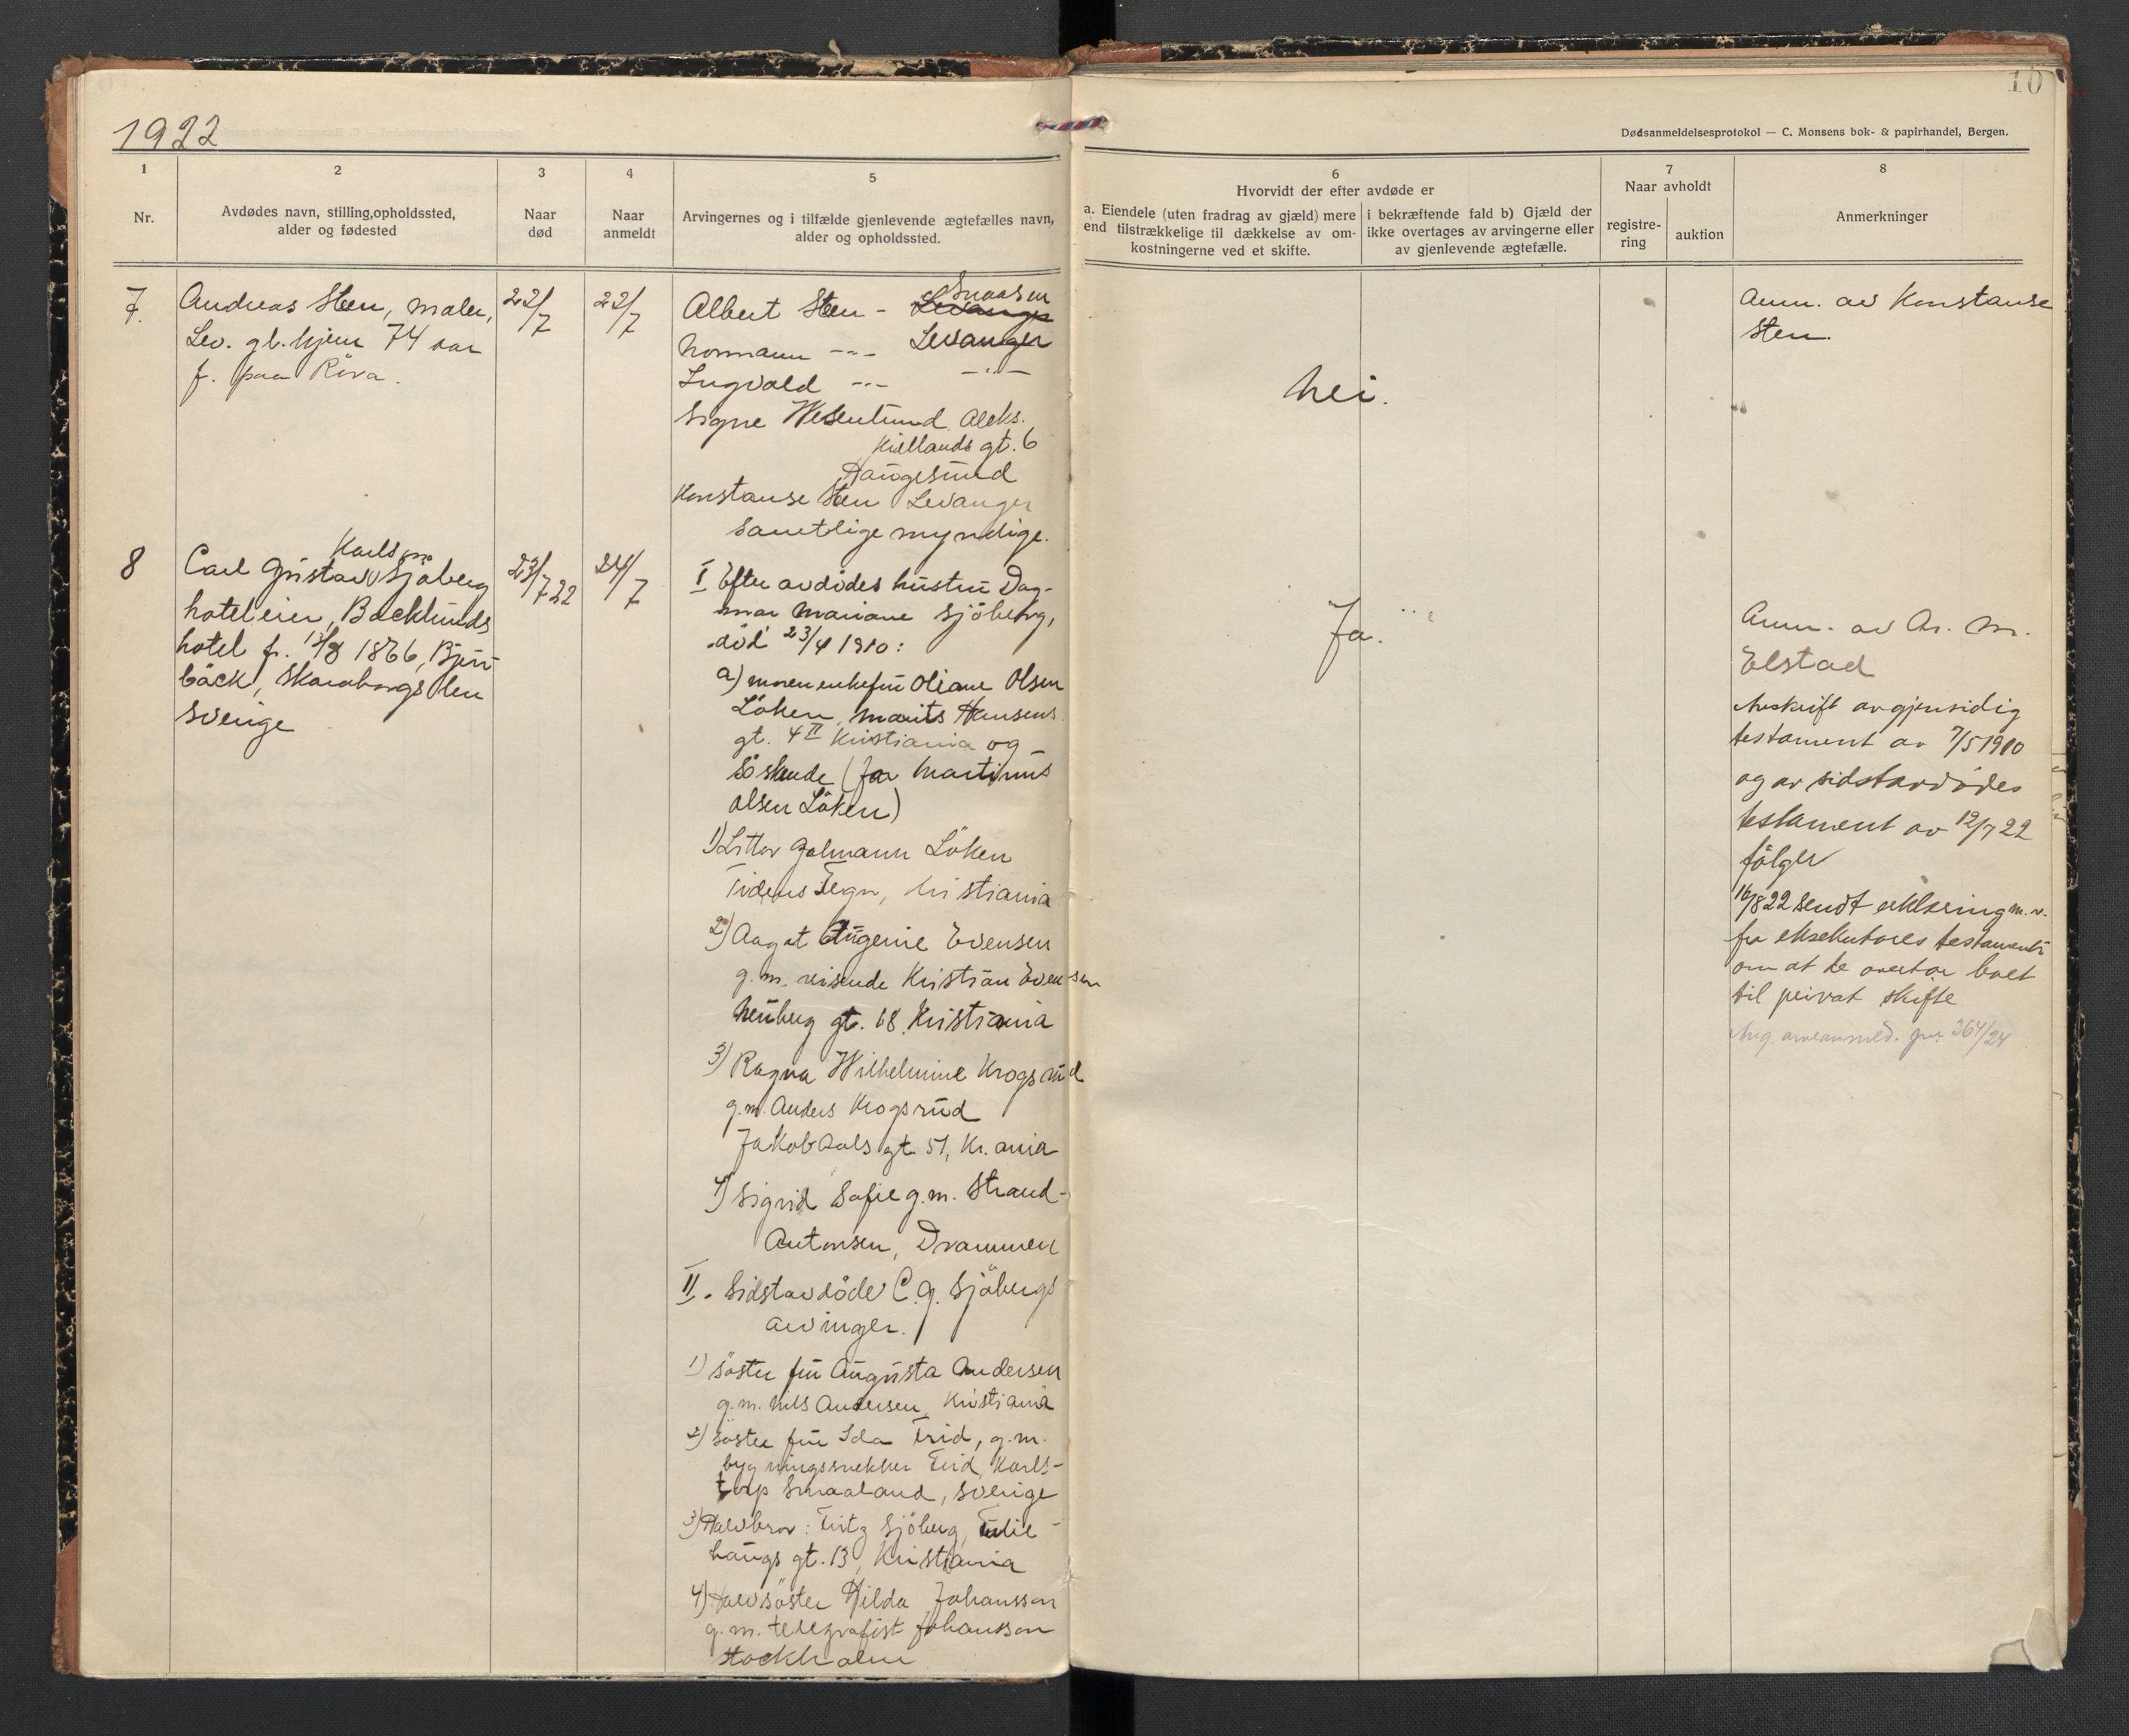 1922
10
Dødsanmeldelsesprotokol — C. Monsens bok- & papirhandel, Bergen.
1
Nr.
2
Avdødes navn, stilling,opholdssted,
alder og fødested
3
Naar
død
4
Naar
anmeldt
5
Arvingernes og i tilfælde gjenlevende ægtefælles navn,
alder og opholdssted.
6
Hvorvidt der efter avdøde er
a. Eiendele (uten fradrag av gjæld) mere
end tilstrækkelige til dækkelse av om-
kostningerne ved et skifte.
i bekræftende fald b) Gjæld der
ikke overtages av arvingerne eller
av gjenlevende ægtefælle.
7
Naar avholdt
registre-
ring
auktion
8
Anmerkninger
7.
Andreas Sten, maler,
Lev. gl. hjem 74 aar
f. paa Röra.
22/7
22/7
Snaasen
Albert Sten - Levanger
Normann -"- Levanger
Ingvald -"- -"-
Signe Wesenlund Aleks.
Kiellands gt. 6
Haugesund
Konstanse Sten Levanger
samtlige myndige.
Nei.
Anm. av Konstanse
Sten.
8
Karlson
Carl Gustav Sjöberg
hoteleier, Backlunds
hotel f. 1866,
bäck, Skaraborgs len
Sverige
23/7 22
24/7
I Efter avdödes hustru Dag-
mar Mariane Sjöberg,
död 23/4 1910:
a) moren enkefru Oliane Olsen
Löken, Marits Hansens
gt. 4 II Kristiania og
söskende (far Martinus
Olsen Löken)
1) Löken
Tidens Tegn, Kristiania
2) Aagot Eugenie Evensen
g.m. reisende Kristian Evensen
Neuberg gt. 18. Kristiania
3) Ragna Wilhelmine Krogsrud
g.m. Anders Krogsrud
Jakob Aals gt 51, Kr.ania
4) Sigrid Sofie g.m. Strand-
Antonsen, Drammen
II. Sidstavdöde C. G. Sjöbergs
arvinger.
1) söster fru Augusta Andersen
g.m. Nils Andersen, Kristiania
2) söster fru Ida Frid, g.m.
bygningssnekker Frid, Karls-
torp Smaaland, Sverige
3) Halvbror: Fritz Sjöberg,
haugs gt. 13, Kristiania
4) Halvsöster Hilda Johansson
g.m. telegrafist Johansson
Stockholm
Ja.
Anm. av Ar. M.
Elstad
Avskrift av gjensidig
testament av 7/5 1910
og av sidstavdödes
testament av 12/7 22
fölger
16/8 22 sendt erklæring m.v.
fra eksekutores testamenti
om at de overtar boet
til privat skifte
Ang. arveanmeld. jnr. 364/24